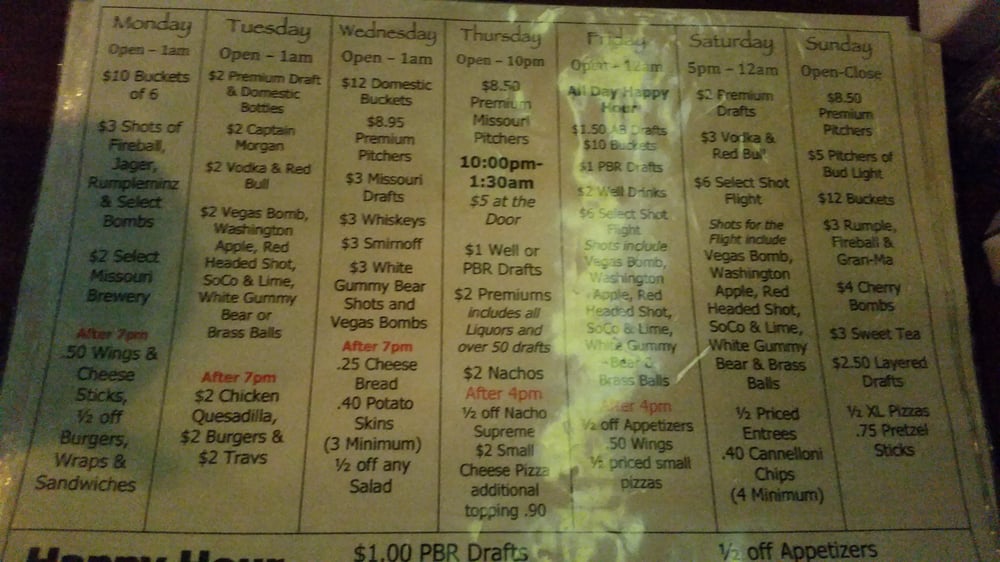 Monday
Open - 1am
$10 Buckets
of 6
$3 Shots of
Fireball,
Jager,
Rumpleminz
& Select
Bombs
$2 Select
Missouri
Brewery
After 7pm
.50 Wings &
Cheese
Sticks,
½ off
Burgers,
Wraps &
Sandwiches
Tuesday
Open - 1am
$2 Premium Draft
& Domestic
Bottles
$2 Captain
Morgan
$2 Vodka & Red
Bull
$2 Vegas Bomb,
Washington
Apple, Red
Headed Shot,
SoCo & Lime,
White Gummy
Bear or
Brass Balls
After 7pm
$2 Chicken
Quesadilla,
$2 Burgers &
$2 Travs
Wednesday
Open - 1am
$12 Domestic
Buckets
$8.95
Premium
Pitchers
$3 Missouri
Drafts
$3 Whiskeys
$3 Smirnoff
$3 White
Gummy Bear
Shots and
Vegas Bombs
After 7pm
.25 Cheese
Bread
.40 Potato
Skins
(3 Minimum)
½ off any
Salad
Thursday
Open - 10pm
$8.50
Premium
Missouri
Pitchers
10:00pm-
1:30am
$5 at the
Door
$1 Well or
PBR Drafts
$2 Premiums
includes all
Liquors and
over 50 drafts
$2 Nachos
After 4pm
½ off Nacho
Supreme
$2 Small
Cheese Pizza
additional
topping .90
Friday
Open - 12am
All Day Happy
Hour
$1.50 AB Drafts
$10 Buckets
$1 PBR Drafts
$2 Well Drinks
$6 Select Shot
Flight
Shots include
Vegas Bomb,
Washington
Apple, Red
Headed Shot,
SoCo & Lime,
White Gummy
Bear &
Brass Balls
After 4pm
½ off Appetizers
.50 Wings
½ priced small
pizzas
Saturday
5pm - 12am
$2 Premium
Drafts
$3 Vodka &
Red Bull
$6 Select Shot
Flight
Shots for the
Flight include
Vegas Bomb,
Washington
Apple, Red
Headed Shot,
SoCo & Lime,
White Gummy
Bear & Brass
Balls
½ Priced
Entrees
.40 Cannelloni
Chips
(4 Minimum)
Sunday
Open-Close
$8.50
Premium
Pitchers
$5 Pitchers of
Bud Light
$12 Buckets
$3 Rumple,
Fireball &
Gran-Ma
$4 Cherry
Bombs
$3 Sweet Tea
$2.50 Layered
Drafts
½ XL Pizzas
.75 Pretzel
Sticks
Happy Hour
$1.00 PBR Drafts
½ off Appetizers